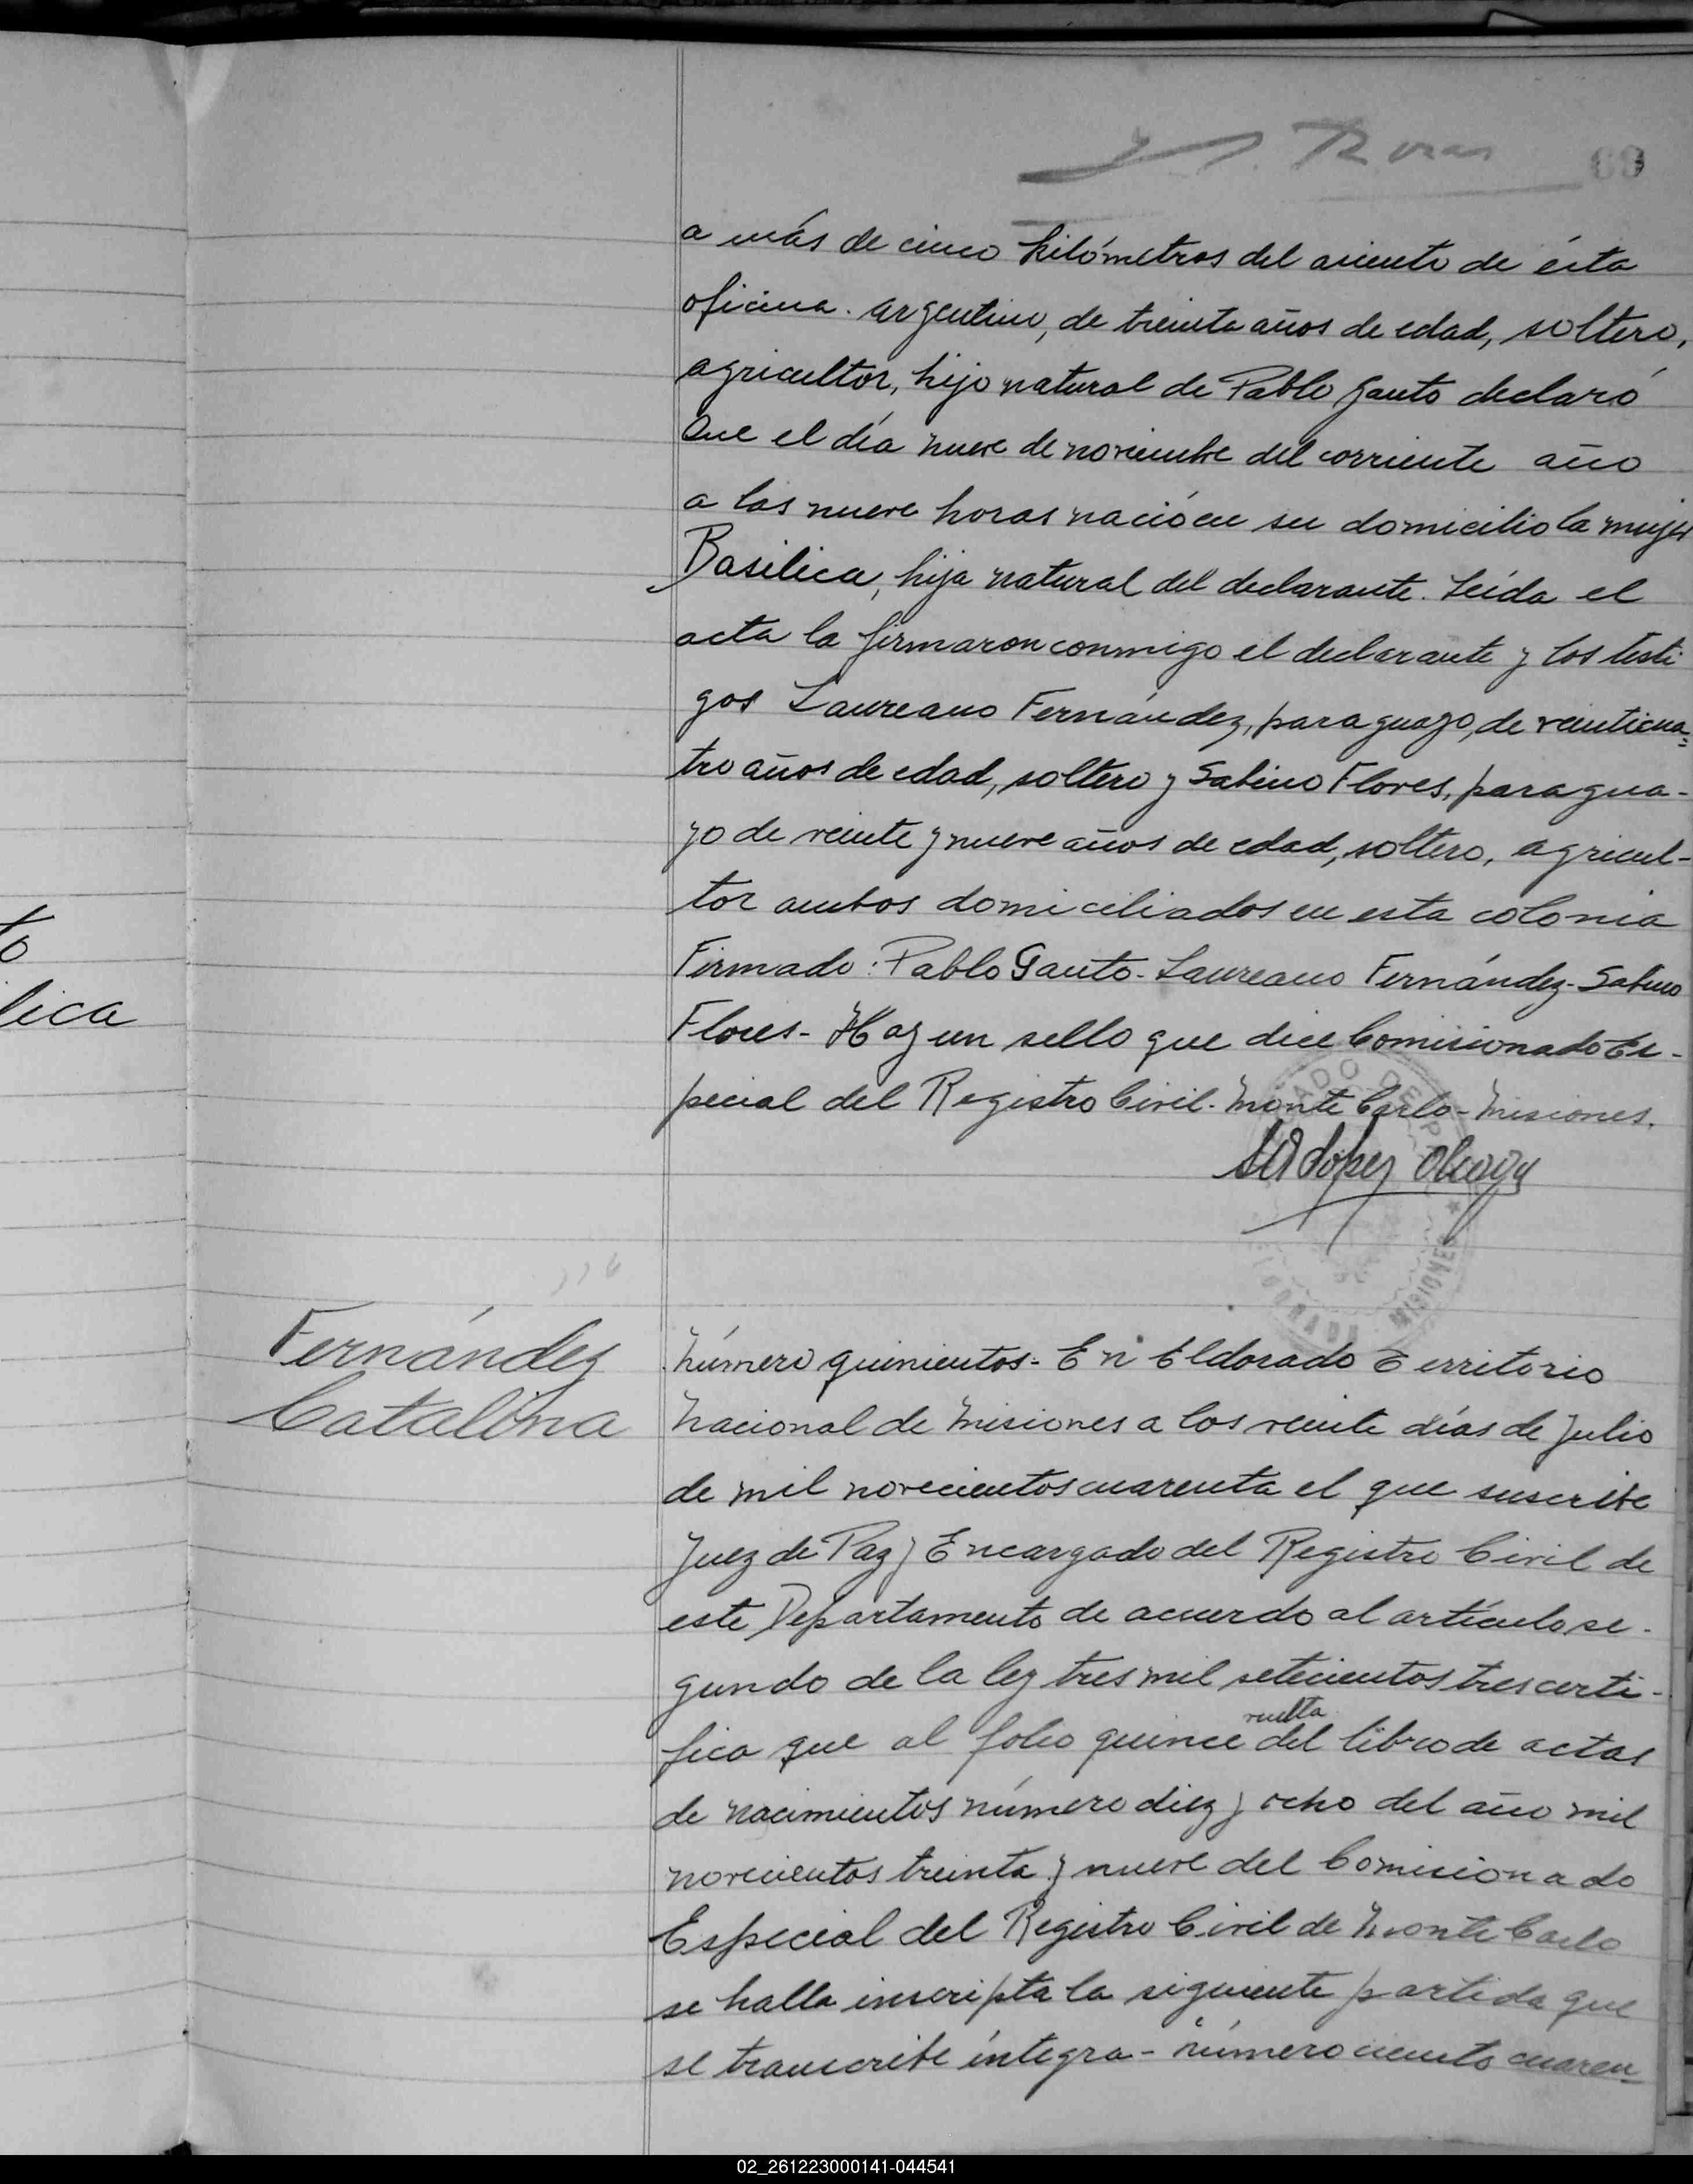 69
a más de cinco kilómetros del asiento de ésta
oficina. argentino, de treinta años de edad, soltero,
agricultor, hijo natural de Pablo Gauto declaró
Que el día nueve de noviembre del corriente año
a las nueve horas nació en su domicilio la mujer
Basilica, hija natural del declarante. Leída el
acta la firmaron conmigo el declarante y los testi
gos Laureano Fernández, paraguayo, de veinticua=
tro años de edad, soltero y Sabino Flores, paragua-
yo de veinte y nueve años de edad, soltero, agricul-
tor ambos domiciliados en esta colonia
Firmado: Pablo Gauto- Laureano Fernández- Sabino
Flores- Hay un sello que dice Comisionado Es-
pecial del Registro Civil. Monte Carlo- Misiones.
to
lica
MISIONES
Fernández
Catalina
Número quinientos- En Eldorado Territorio
Nacional de Misiones a los veinte días de Julio
de mil novecientos cuarenta el que suscribe
Juez de Paz y Encargado del Registro Civil de
este Departamento de acuerdo al artículo se-
gundo de la ley tres mil setecientos tres certi-
fica que al folio quince vuelta del libro de actas
de nacimientos número diez y ocho del año mil
novecientos treinta y nueve del Comisionado
Especial del Registro Civil de Monte Carlo
se halla inscripta la siguiente partida que
se transcribe íntegra- número ciento cuaren=
02_261223000141-044541